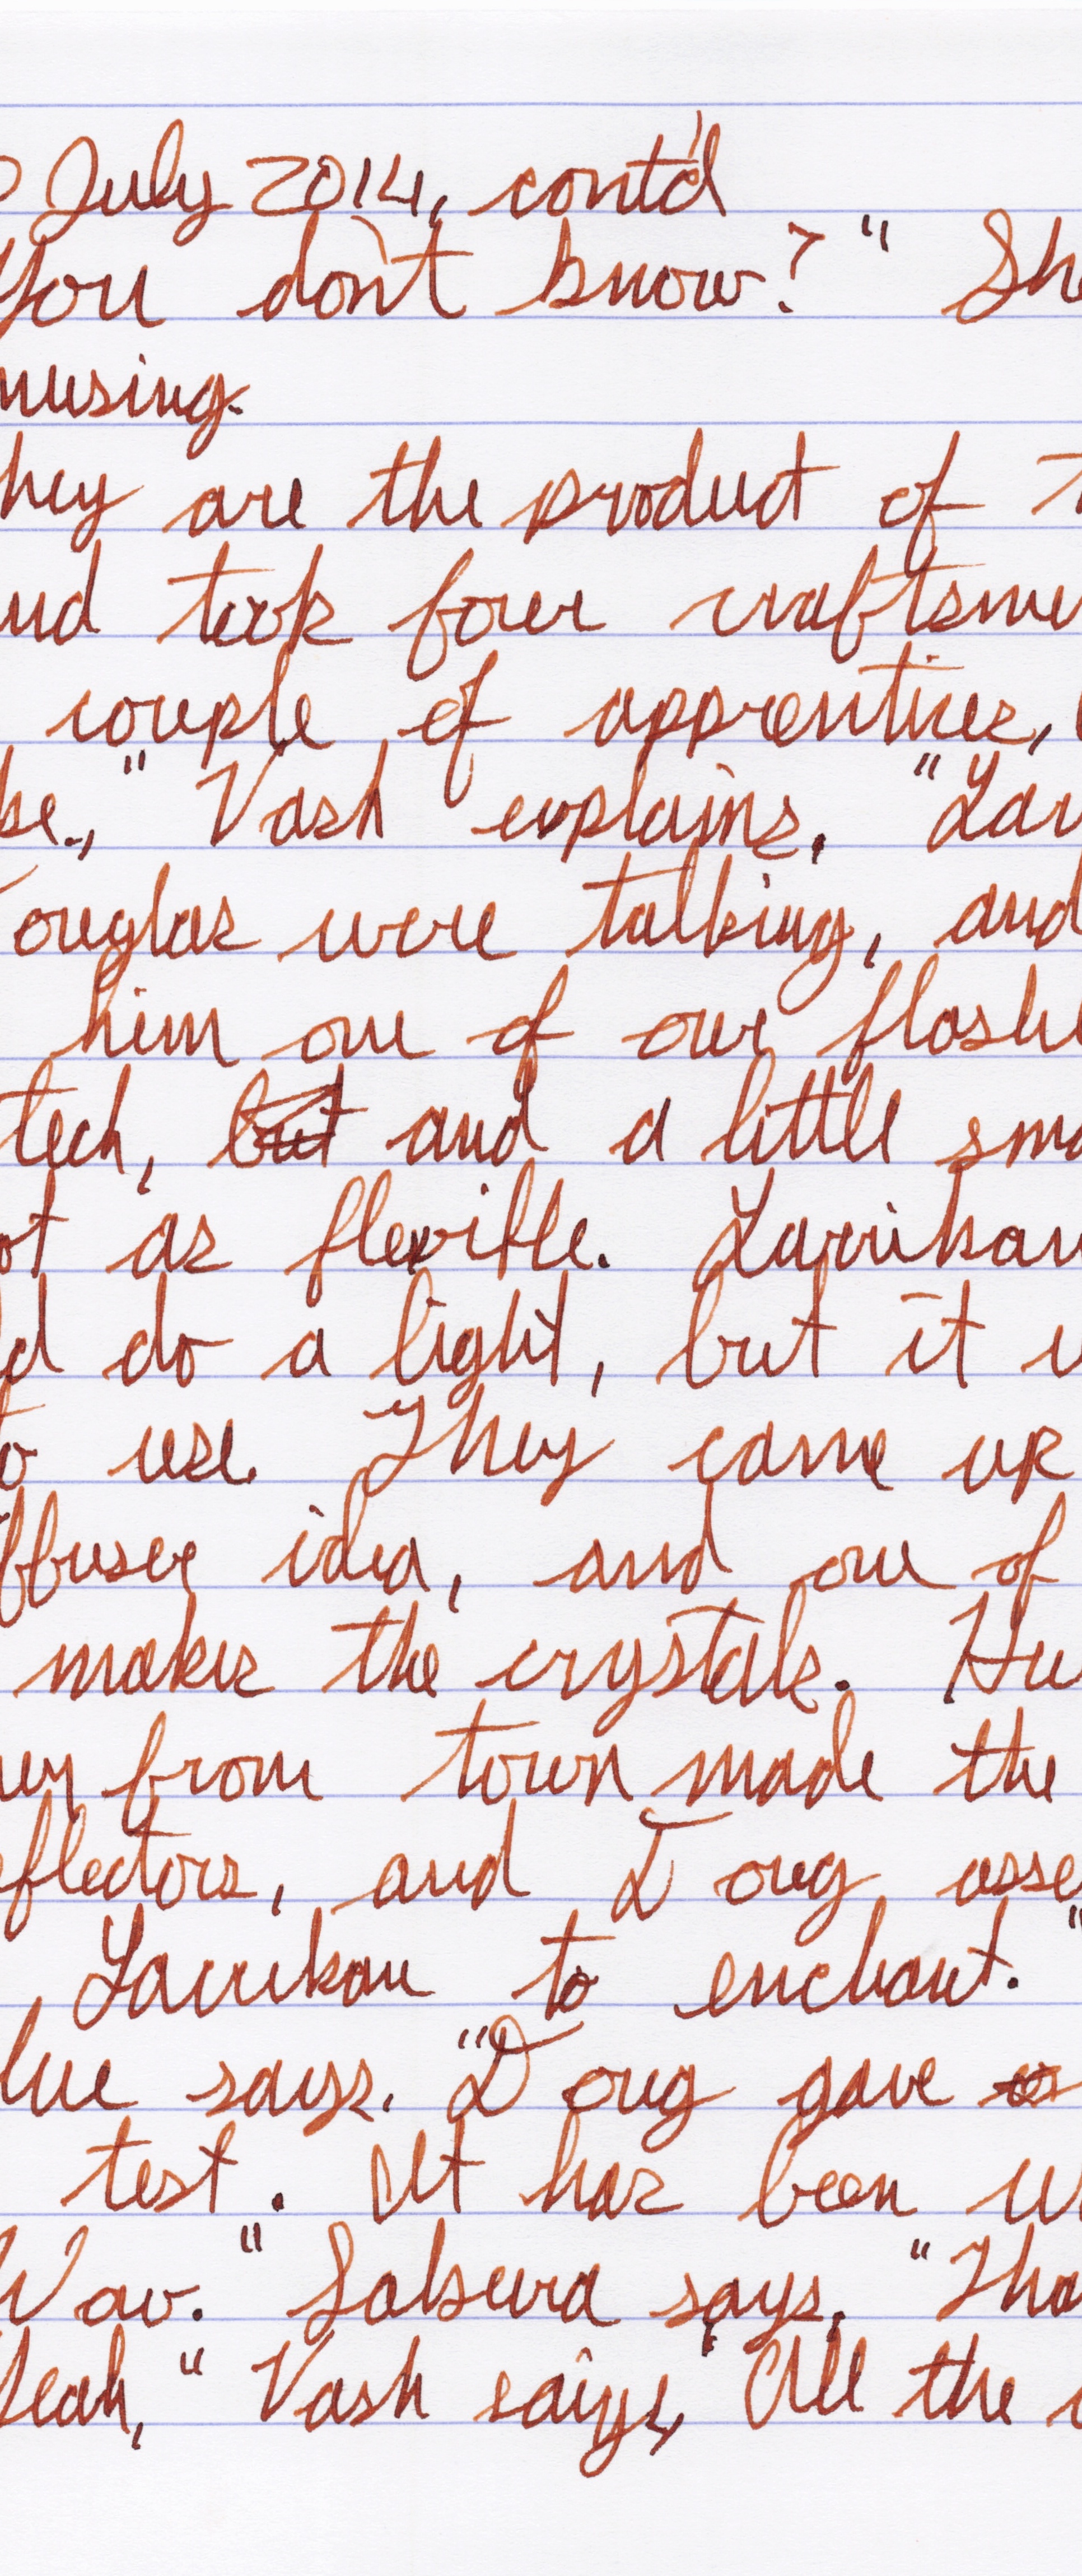 July 2014, cont'd
You don't know?" She
musing.
hey are the product of
and took four craftsme
couple of apprentices,
be.," Vash explains. "Lar
Douglas were talking, and
him one of our flashl
tech, but and a little sma
ot as flexible. Larrikan
ld do a light, but it w
to use. They came up
ffuser idea, and one of
makes the crystals. Hu
from town made the
eflectors, and Doug asse
Larrikan to enchant."
lue says. "Doug gave
test. It has been w
Wow." Salsura says. "Tha
Yeah," Vash says, "All the